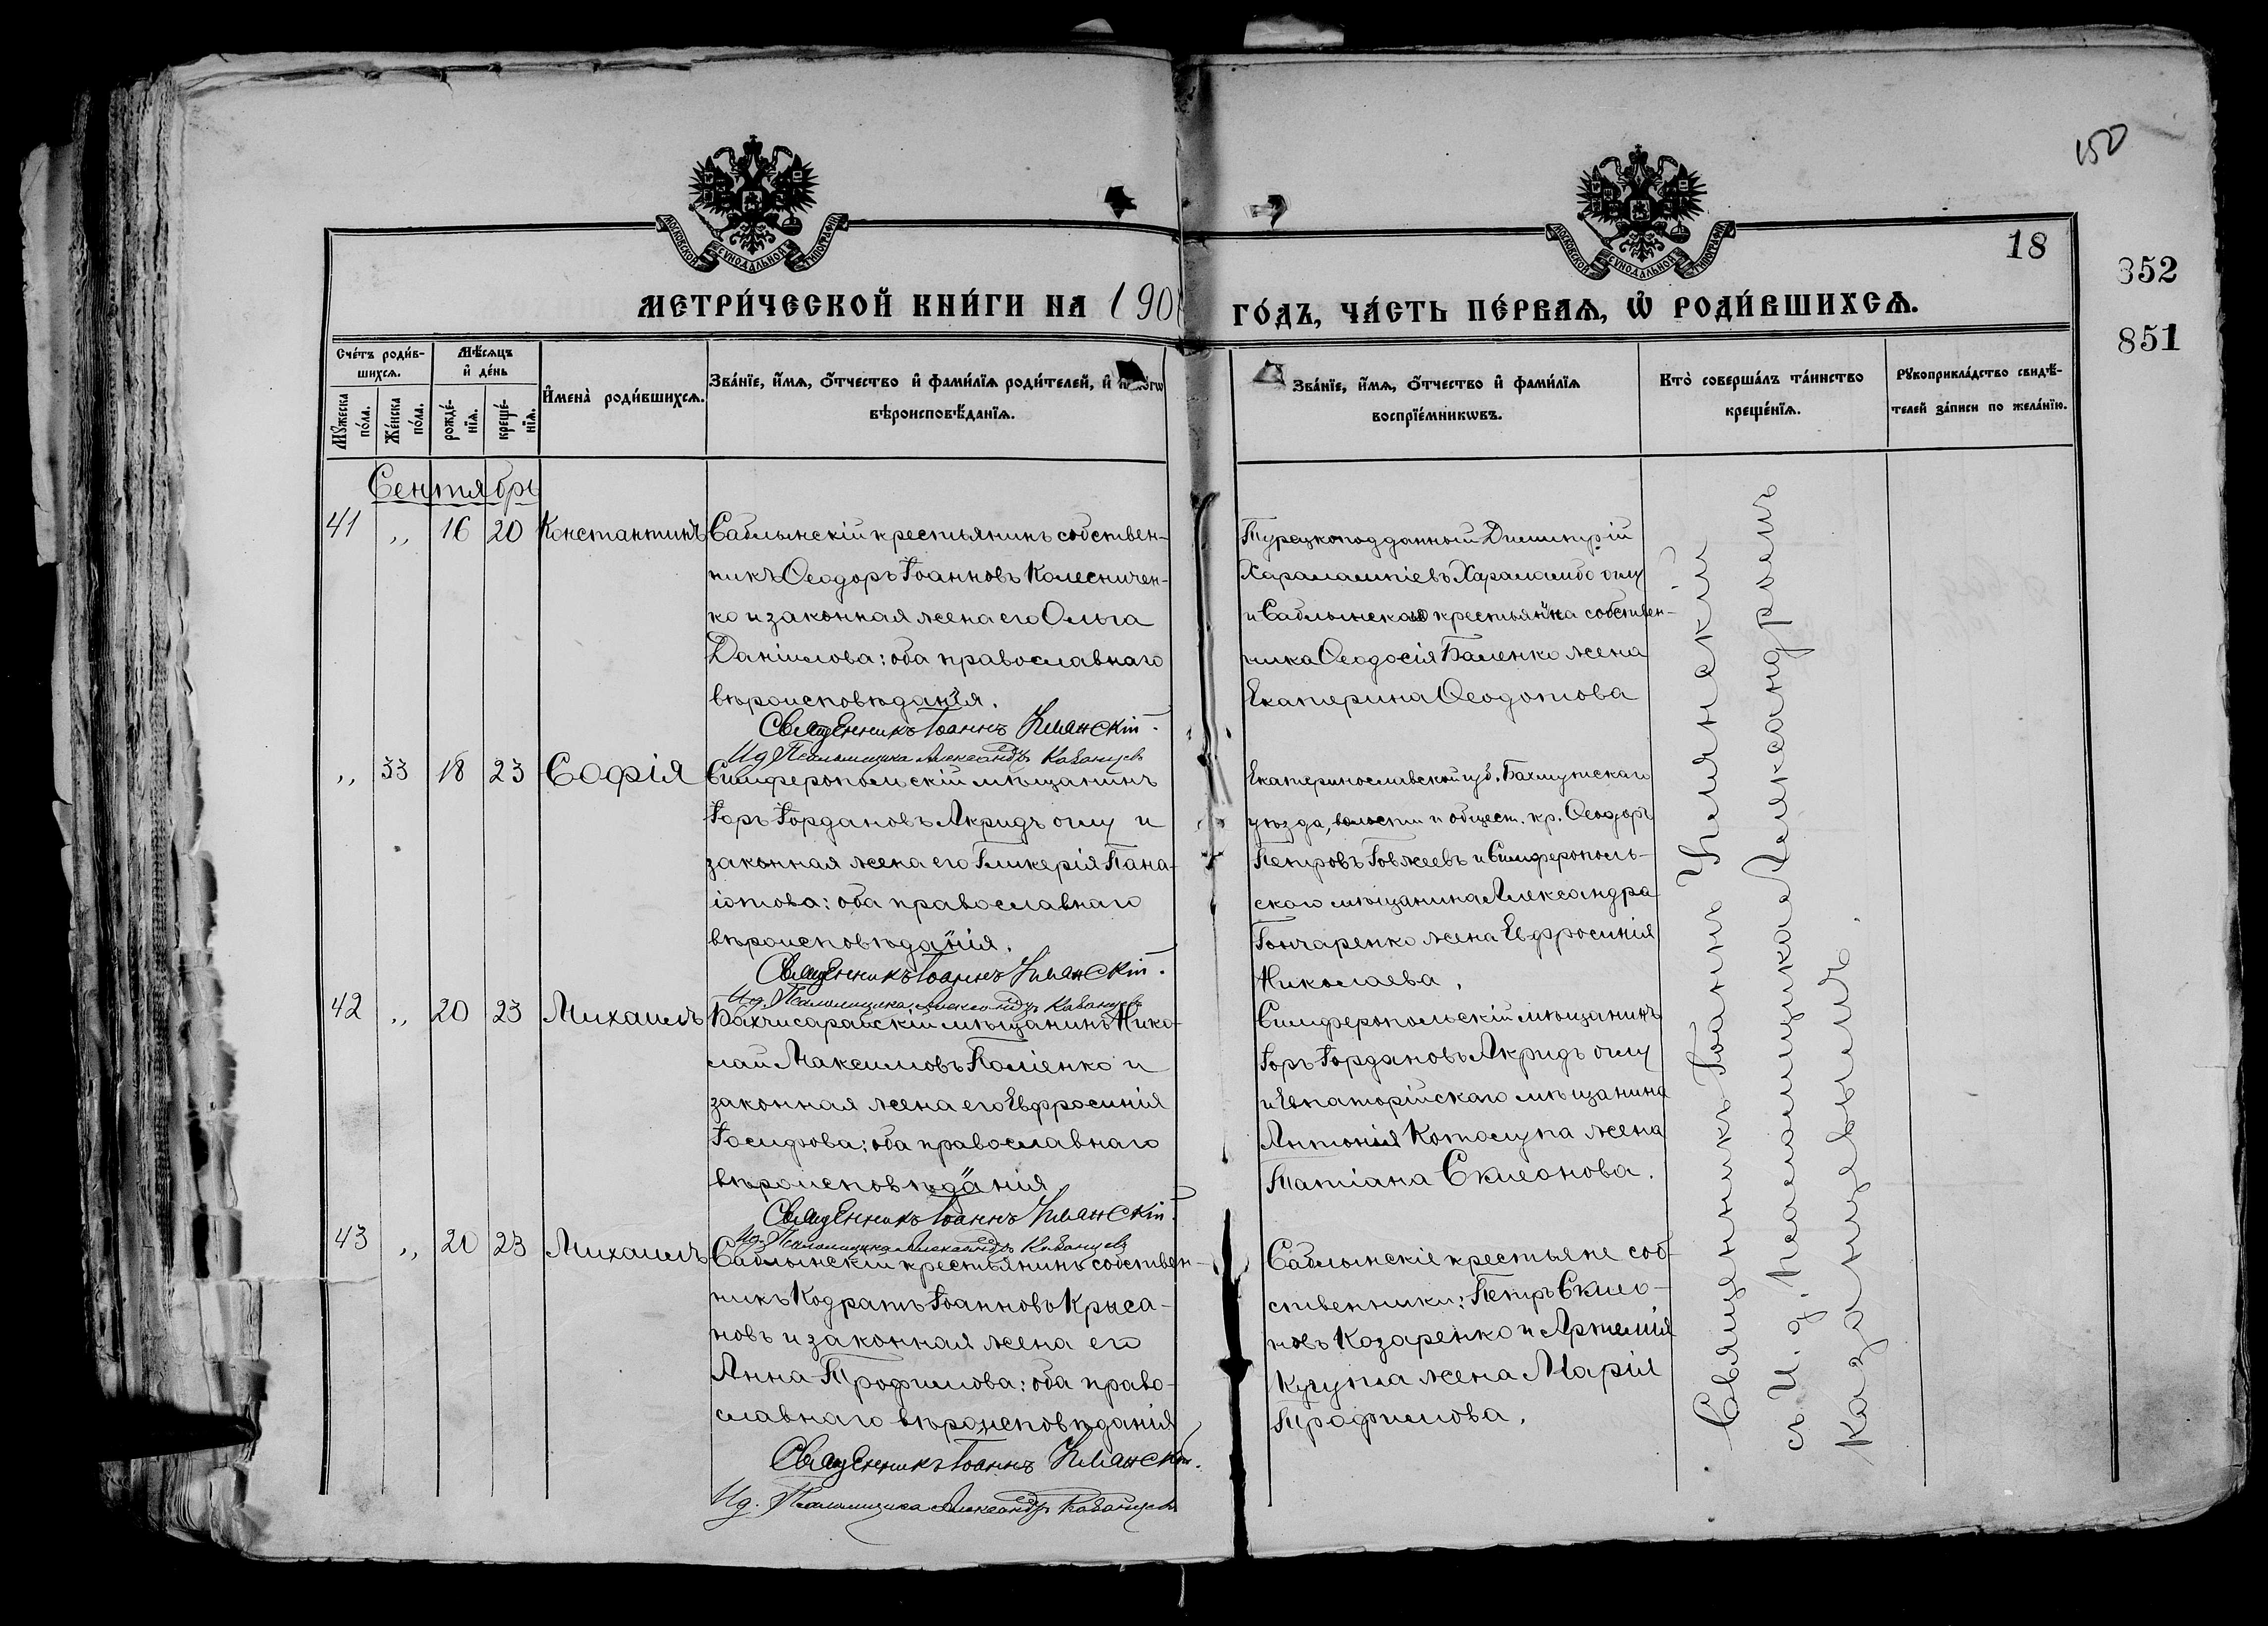 150
МОСКОВСКОЙ СѴНОДАЛЬНОЙ ТИПОГРАФІИ
МОСКОВСКОЙ СѴНОДАЛЬНОЙ ТИПОГРАФІИ
18
352
851
МЕТРИ́ЧЕСКОЙ КНИ́ГИ НА 190
ГО́ДЪ, ЧА́СТЬ ПЕ́РВАѦ, Ѡ҆ РОДИ́ВШИХСѦ.
Сче́тъ роди́в-
шихсѧ.
Мꙋ́жеска по́ла.
Же́нска по́ла.
Мѣ́сѧцъ
и҆ де́нь
рожде́-
нїѧ.
креще́-
нїѧ.
И҆мена̀ роди́вшихсѧ.
Зва́нїе, и҆́мѧ, ѻ҆́тчество и҆ фами́лїѧ роди́телей, и҆
вѣроисповѣ́данїѧ.
Зва́нїе, и҆́мѧ, ѻ҆́тчество и҆ фами́лїѧ
воспрїе́мникѡвъ.
Кто̀ соверша́лъ та́инство
креще́нїѧ.
Рꙋкоприкла́дство свидѣ́-
телей за́писи по жела́нїю.
Сентябрь
41 „ 16 20 Константинъ
Саблынскій крестьянинъ собствен-
никъ Ѳеодоръ Іоанновъ Колесничен-
ко и законная жена его Ольга
Даніилова: оба православнаго
вѣроисповѣданія.
Священникъ Іоаннъ Уманскій.
И д. Псаломщика Александръ Казанцевъ
Турецкоподданный Димитрій
Харалампіевъ Харалambo оглу
и Саблынскаго крестьянина собствен-
ника Ѳеодосія Баленко жена
Екатерина Ѳеодотова
„ 33 18 23 Софія
Симферопольскій мѣщанинъ
Іоръ Іордановъ Акридъ оглу и
законная жена его Гликерія Пана-
іотова: оба православнаго
вѣроисповѣданія.
Священникъ Іоаннъ Уманскій.
И д. Псаломщика Александръ Казанцевъ
Екатеринославской губ. Бахмутскаго
уѣзда, волости и общест. кр. Ѳеодоръ
Петровъ Говжеевъ и Симферополь-
скаго мѣщанина Александра
Гончаренко жена Евфросинія
Николаева.
42 „ 20 23 Михаилъ
Бахчисарайскій мѣщанинъ Нико-
лай Максимовъ Поліенко и
законная жена его Евфросинія
Іосифова: оба православнаго
вѣроисповѣданія
Священникъ Іоаннъ Уманскій.
И д. Псаломщика Александръ Казанцевъ
Симферопольскій мѣщанинъ
Іоръ Іордановъ Акридъ оглу
и Евпаторійскаго мѣщанина
Антонія Котолупа жена
Татіана Симонова.
43 „ 20 23 Михаилъ
Саблынскій крестьянинъ собствен-
никъ Кодратъ Іоанновъ Крыса-
новъ и законная жена его
Анна Трофимова: оба право-
славнаго вѣроисповѣданія
Священникъ Іоаннъ Уманскій.
И д. Псаломщика Александръ Казанцевъ
Саблынскіе крестьяне соб-
ственники: Петръ Симо-
новъ Козаренко и Артемія
жена Марія
Трофимова.
Священникъ Іоаннъ Уманскій
съ И. д. псаломщика Александромъ
Казанцевымъ.